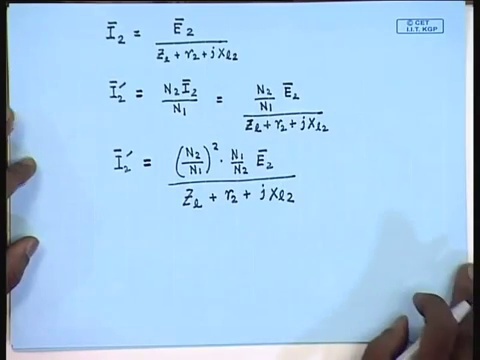 © CET
I.I.T. KGP
Ī₂ = Ē₂ / (Z_l + r₂ + jX_l2)
Ī₂′ = N₂Ī₂ / N₁ = (N₂/N₁) Ē₂ / (Z_l + r₂ + jX_l2)
Ī₂′ = (N₂/N₁)² · (N₁/N₂) Ē₂ / (Z_l + r₂ + jX_l2)